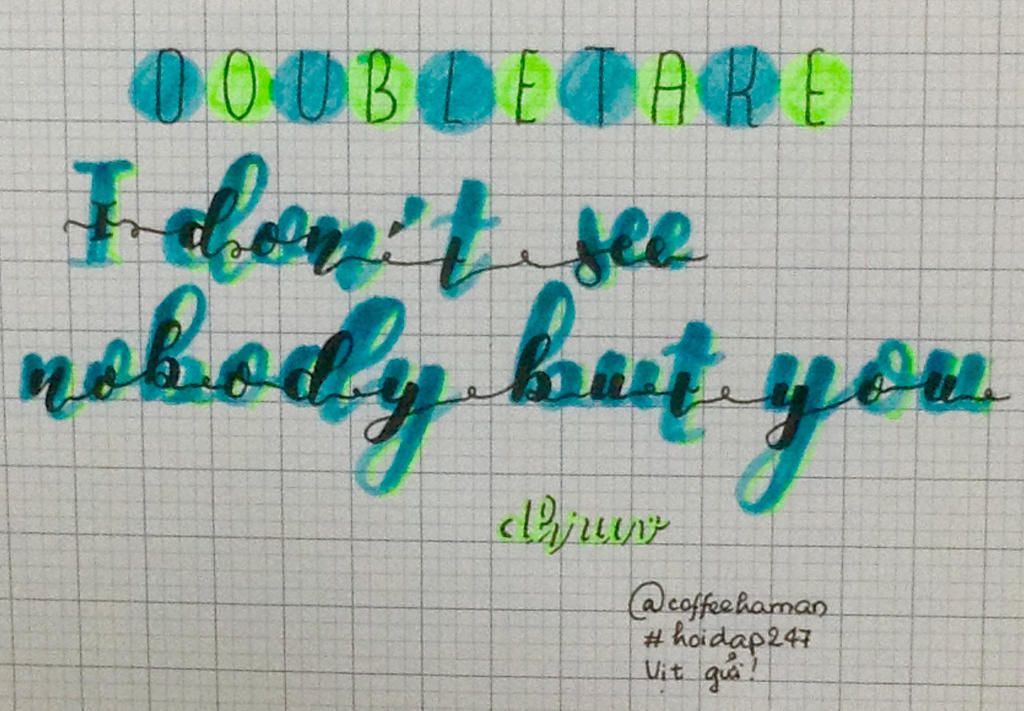 DOUBLE TAKE
I don't see
nobody but you
dhruv
@coffeehaman
#hoidap247
Vịt gửi!